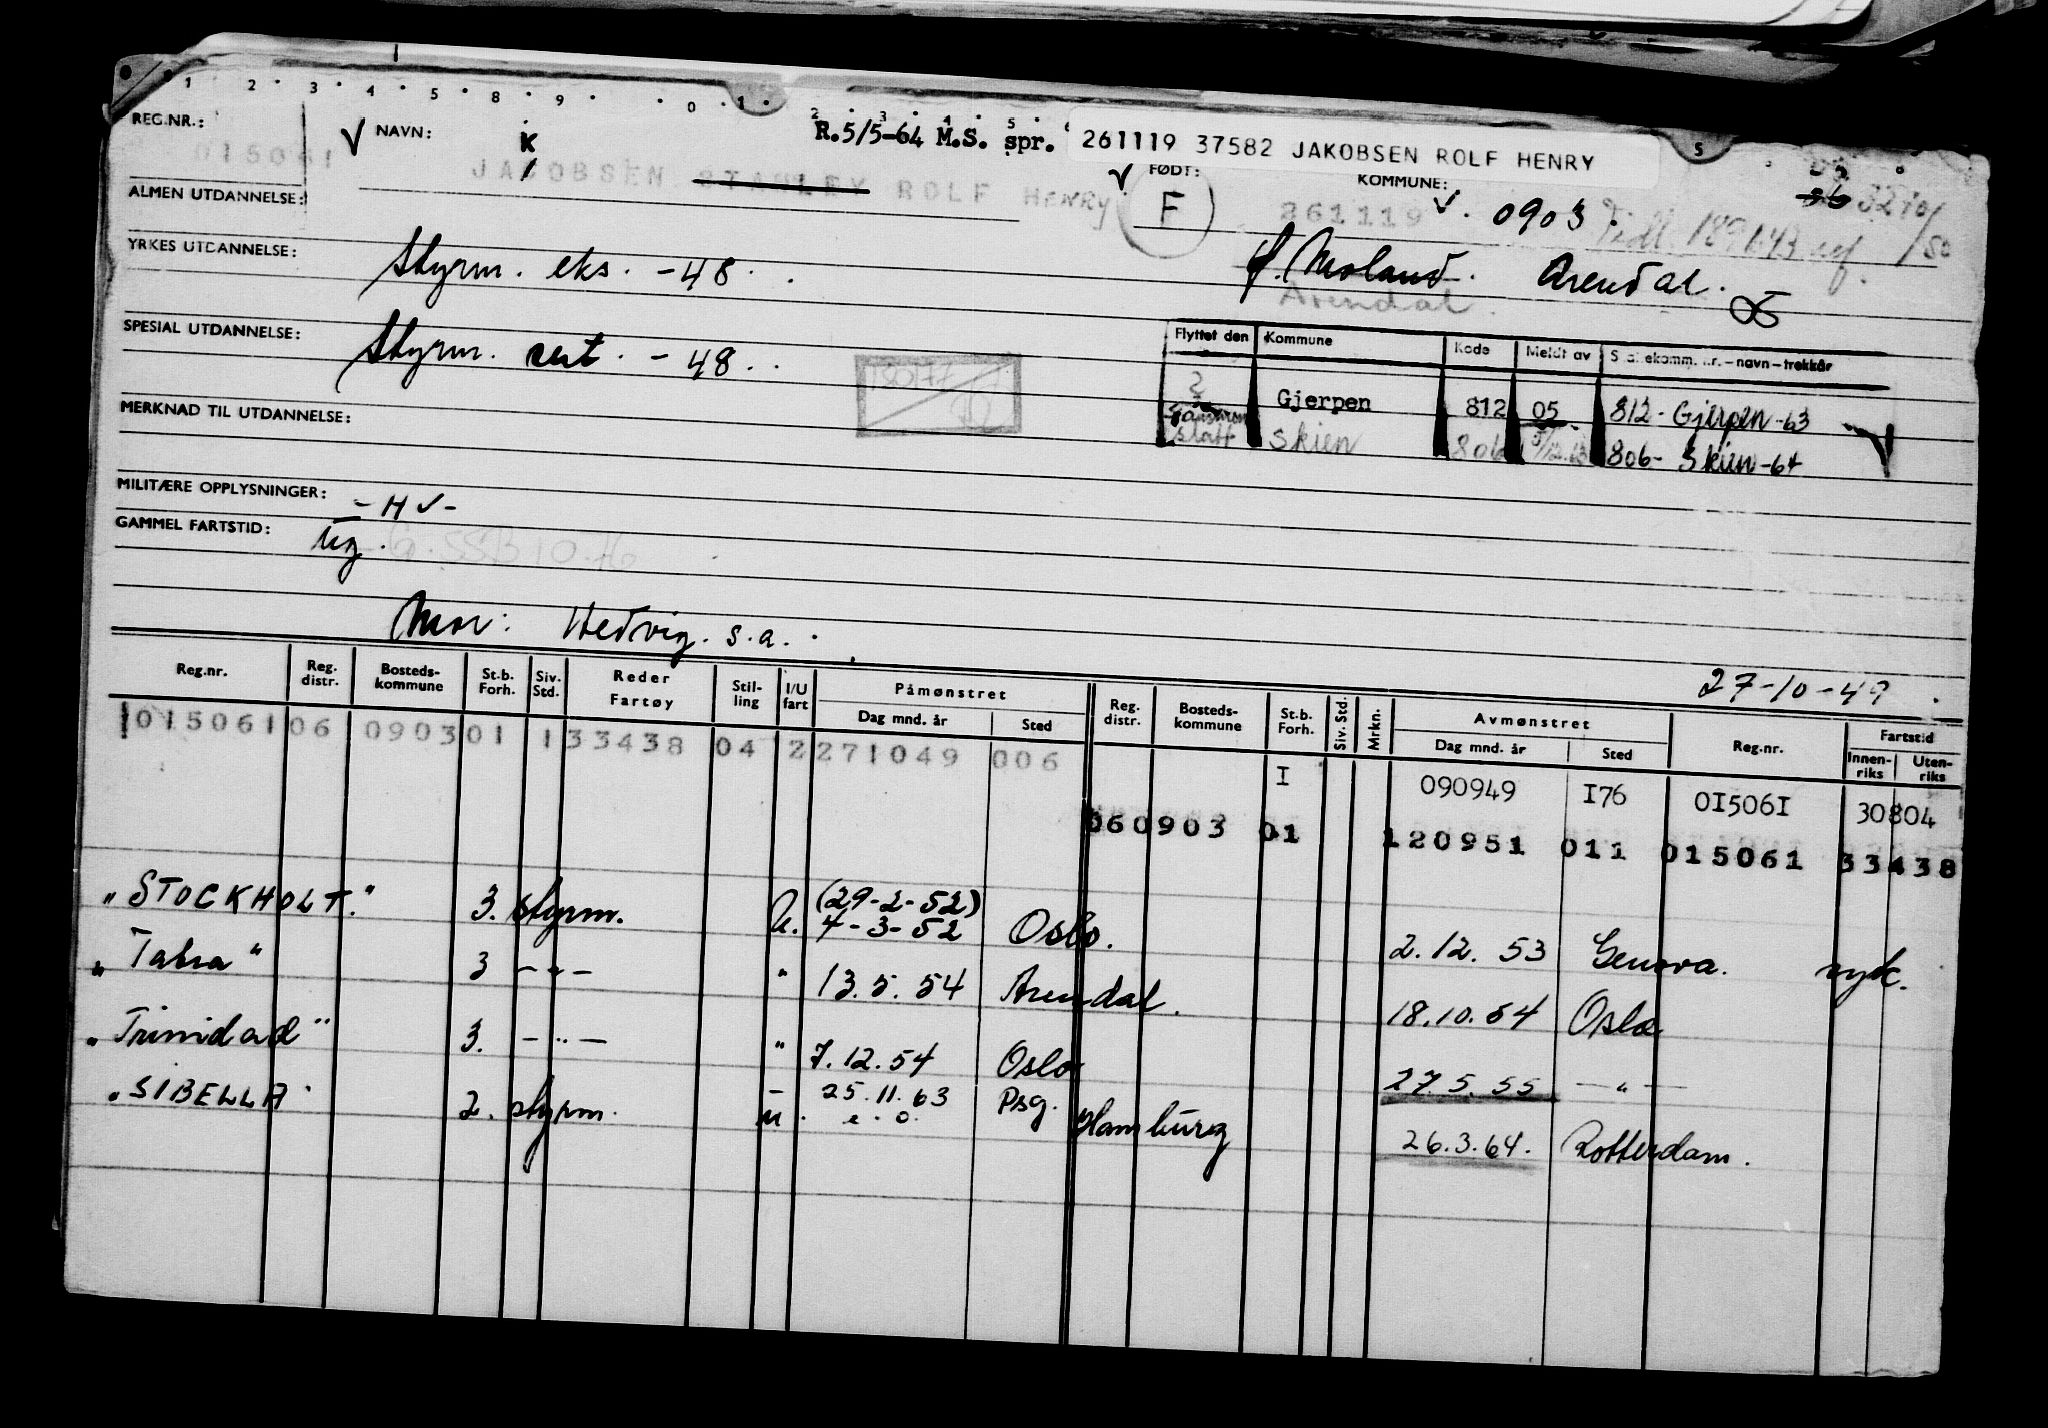 1 2 3 4 5 8 9 0 1 2 3 4 5 S
REG.NR.: NAVN: K R.5/5-64 M.S. spr. 261119 37582 JAKOBSEN ROLF HENRY
FØDT: KOMMUNE:
015061 JACOBSEN STANLEY ROLF HENRY F 261119 0903
ALMEN UTDANNELSE:
YRKES UTDANNELSE: Styrm. eks. -48. f. Moland. Arendal.
Arendal.
SPESIAL UTDANNELSE: Styrm. sert. -48.
Flyttet den Kommune Kode Meldt av Skattekomm. nr.-navn-trekkår
Gjerpen 812 05 812- Gjerpen -63
Skien 806 5/12.63 806- Skien -64
MERKNAD TIL UTDANNELSE:
MILITÆRE OPPLYSNINGER: - HV -
GAMMEL FARTSTID: Ug.
Mor: Hedvig. s.a.
27-10-49
Reg.nr. Reg. distr. Bosteds-kommune St.b. Forh. Siv. Std. Reder Fartøy Stil-ling I/U fart Påmønstret Dag mnd. år Sted Reg. distr. Bosteds-kommune St.b. Forh. Siv. Std. Mrkn. Avmønstret Dag mnd. år Sted Reg.nr. Fartstid Innen-riks Uten-riks
015061 06 0903 01 1 33438 04 2 271049 006
I 090949 I76 0I506I 30804
060903 01 120951 011 015061 33438
"STOCKHOLT." 3. styrm. U. (29-2-52) 4-3-52 Oslo. 2.12.53 Genova. syk.
"Tabra" 3 -"- " 13.5.54 Arendal. 18.10.54 Oslo
"Trinidad" 3. -"- " 7.12.54 Oslo 27.5.55 -"-
"SIBELLA" 2. styrm. U. 25.11.63 Psg. Hamburg 26.3.64. Rotterdam.
e.o.